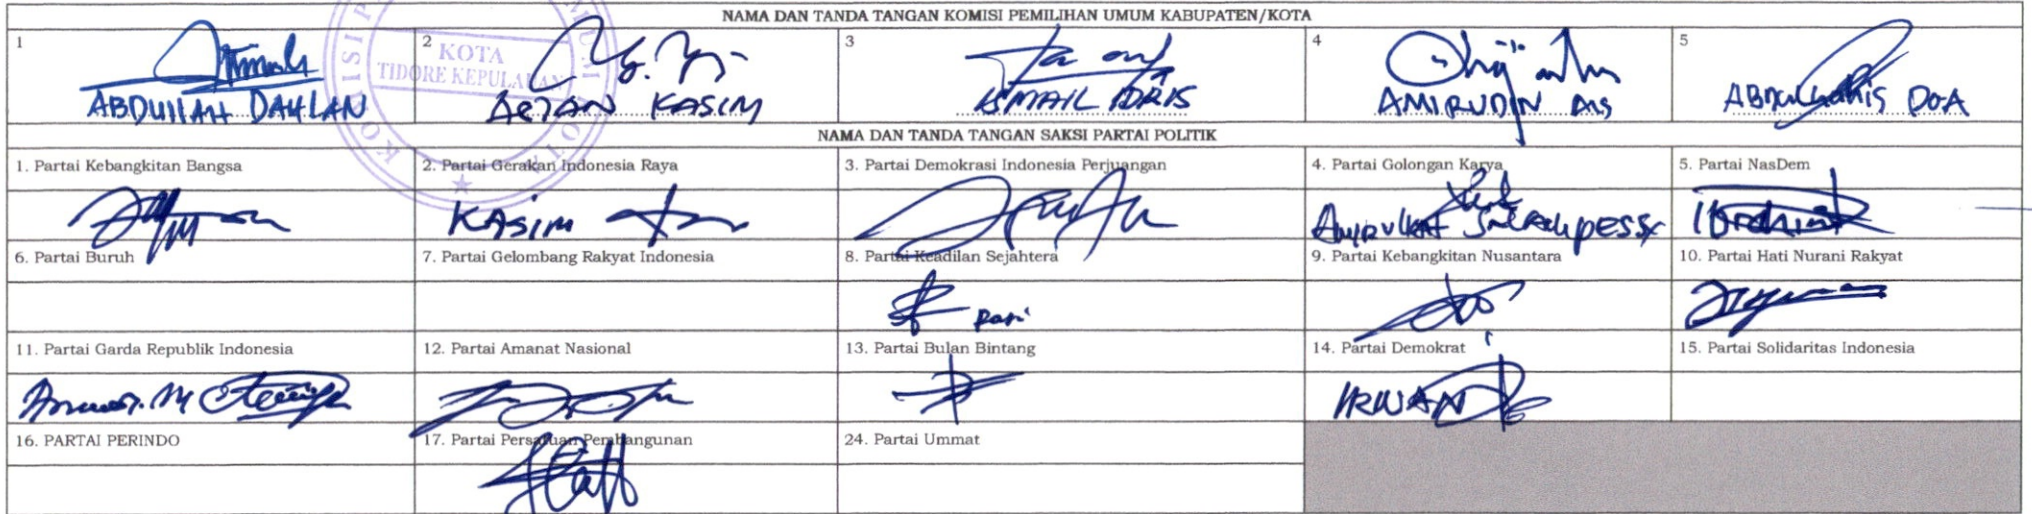 NAMA DAN TANDA TANGAN KOMISI PEMILIHAN UMUM KABUPATEN/KOTA
1 2 3 4 5
KOTA
TIDORE KEPULAUAN
ABDULLAH DAHLAN KASIM ISMAIL IDRIS AMIRUDIN DOA
NAMA DAN TANDA TANGAN SAKSI PARTAI POLITIK
1. Partai Kebangkitan Bangsa 2. Partai Gerakan Indonesia Raya 3. Partai Demokrasi Indonesia Perjuangan 4. Partai Golongan Karya 5. Partai NasDem
KASIM
6. Partai Buruh 7. Partai Gelombang Rakyat Indonesia 8. Partai Keadilan Sejahtera 9. Partai Kebangkitan Nusantara 10. Partai Hati Nurani Rakyat
11. Partai Garda Republik Indonesia 12. Partai Amanat Nasional 13. Partai Bulan Bintang 14. Partai Demokrat 15. Partai Solidaritas Indonesia
IRWAN
16. PARTAI PERINDO 17. Partai Persatuan Pembangunan 24. Partai Ummat